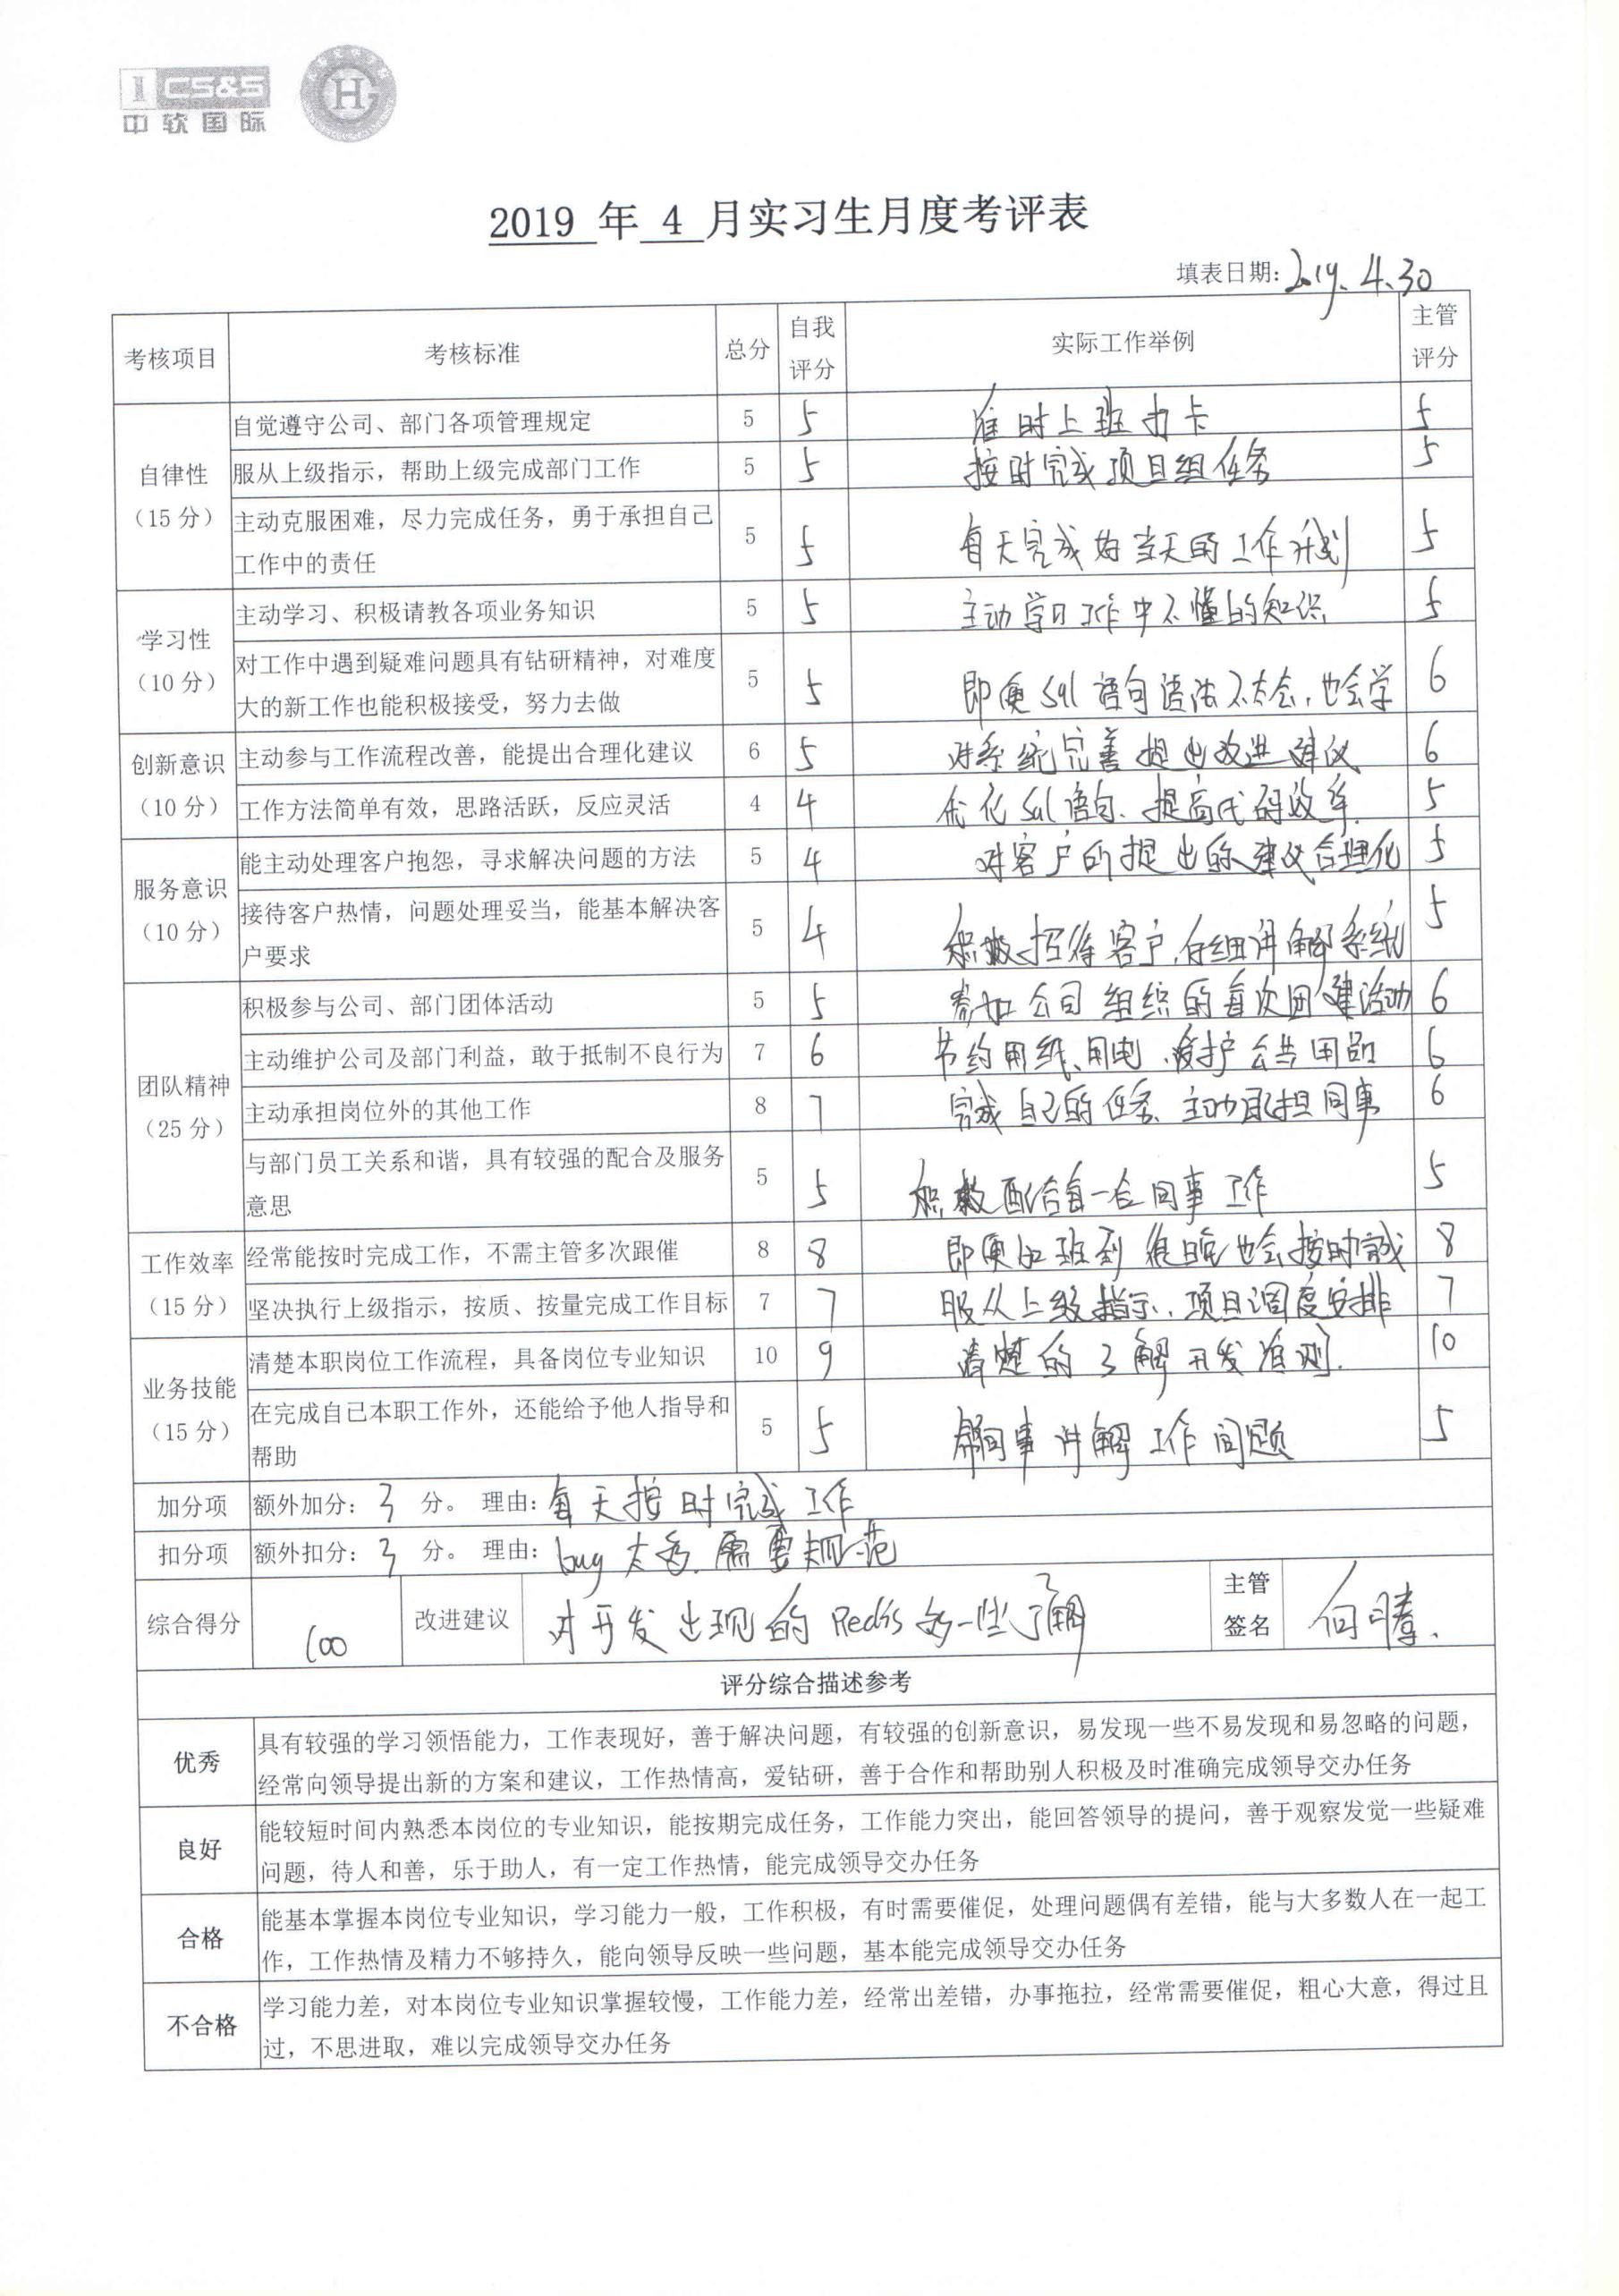 CS&S
中软国际
2019 年 4 月实习生月度考评表
填表日期: 2019.4.30
考核项目 考核标准 总分 自我评分 实际工作举例 主管评分
自律性(15 分)
自觉遵守公司、部门各项管理规定 5 5 准时上班打卡 5
服从上级指示，帮助上级完成部门工作 5 5 按时完成项目组任务 5
主动克服困难，尽力完成任务，勇于承担自己
工作中的责任 5 5 每天完成好当天的工作计划 5
学习性(10 分)
主动学习、积极请教各项业务知识 5 5 主动学习工作中不懂的知识. 5
对工作中遇到疑难问题具有钻研精神，对难度
大的新工作也能积极接受，努力去做 5 5 即便sql语句语法不太会，也会学 6
创新意识(10 分)
主动参与工作流程改善，能提出合理化建议 6 5 对系统完善提出改进建议 6
工作方法简单有效，思路活跃，反应灵活 4 4 优化sql语句、提高代码效率. 5
服务意识(10 分)
能主动处理客户抱怨，寻求解决问题的方法 5 4 对客户所提出的建议合理化 5
接待客户热情，问题处理妥当，能基本解决客
户要求 5 4 积极招待客户,仔细讲解系统 5
团队精神(25 分)
积极参与公司、部门团体活动 5 5 参加公司组织的每次团建活动 6
主动维护公司及部门利益，敢于抵制不良行为 7 6 节约用纸、用电、爱护公共用品 6
主动承担岗位外的其他工作 8 7 完成自己的任务、主动承担同事 6
与部门员工关系和谐，具有较强的配合及服务
意思 5 5 积极配合每一位同事工作 5
工作效率(15 分)
经常能按时完成工作，不需主管多次跟催 8 8 即便加班到很晚也会按时完成 8
坚决执行上级指示，按质、按量完成工作目标 7 7 服从上级指示、项目调度安排 7
业务技能(15 分)
清楚本职岗位工作流程，具备岗位专业知识 10 9 清楚的了解开发准则. 10
在完成自已本职工作外，还能给予他人指导和
帮助 5 5 帮同事讲解工作问题 5
加分项 额外加分: 3 分。 理由: 每天按时完成工作
扣分项 额外扣分: 3 分。 理由: bug太多.需要规范
综合得分 100 改进建议 对开发出现的Redis多一些了解 主管签名
评分综合描述参考
优秀
具有较强的学习领悟能力，工作表现好，善于解决问题，有较强的创新意识，易发现一些不易发现和易忽略的问题，
经常向领导提出新的方案和建议，工作热情高，爱钻研，善于合作和帮助别人积极及时准确完成领导交办任务
良好
能较短时间内熟悉本岗位的专业知识，能按期完成任务，工作能力突出，能回答领导的提问，善于观察发觉一些疑难
问题，待人和善，乐于助人，有一定工作热情，能完成领导交办任务
合格
能基本掌握本岗位专业知识，学习能力一般，工作积极，有时需要催促，处理问题偶有差错，能与大多数人在一起工
作，工作热情及精力不够持久，能向领导反映一些问题，基本能完成领导交办任务
不合格
学习能力差，对本岗位专业知识掌握较慢，工作能力差，经常出差错，办事拖拉，经常需要催促，粗心大意，得过且
过，不思进取，难以完成领导交办任务